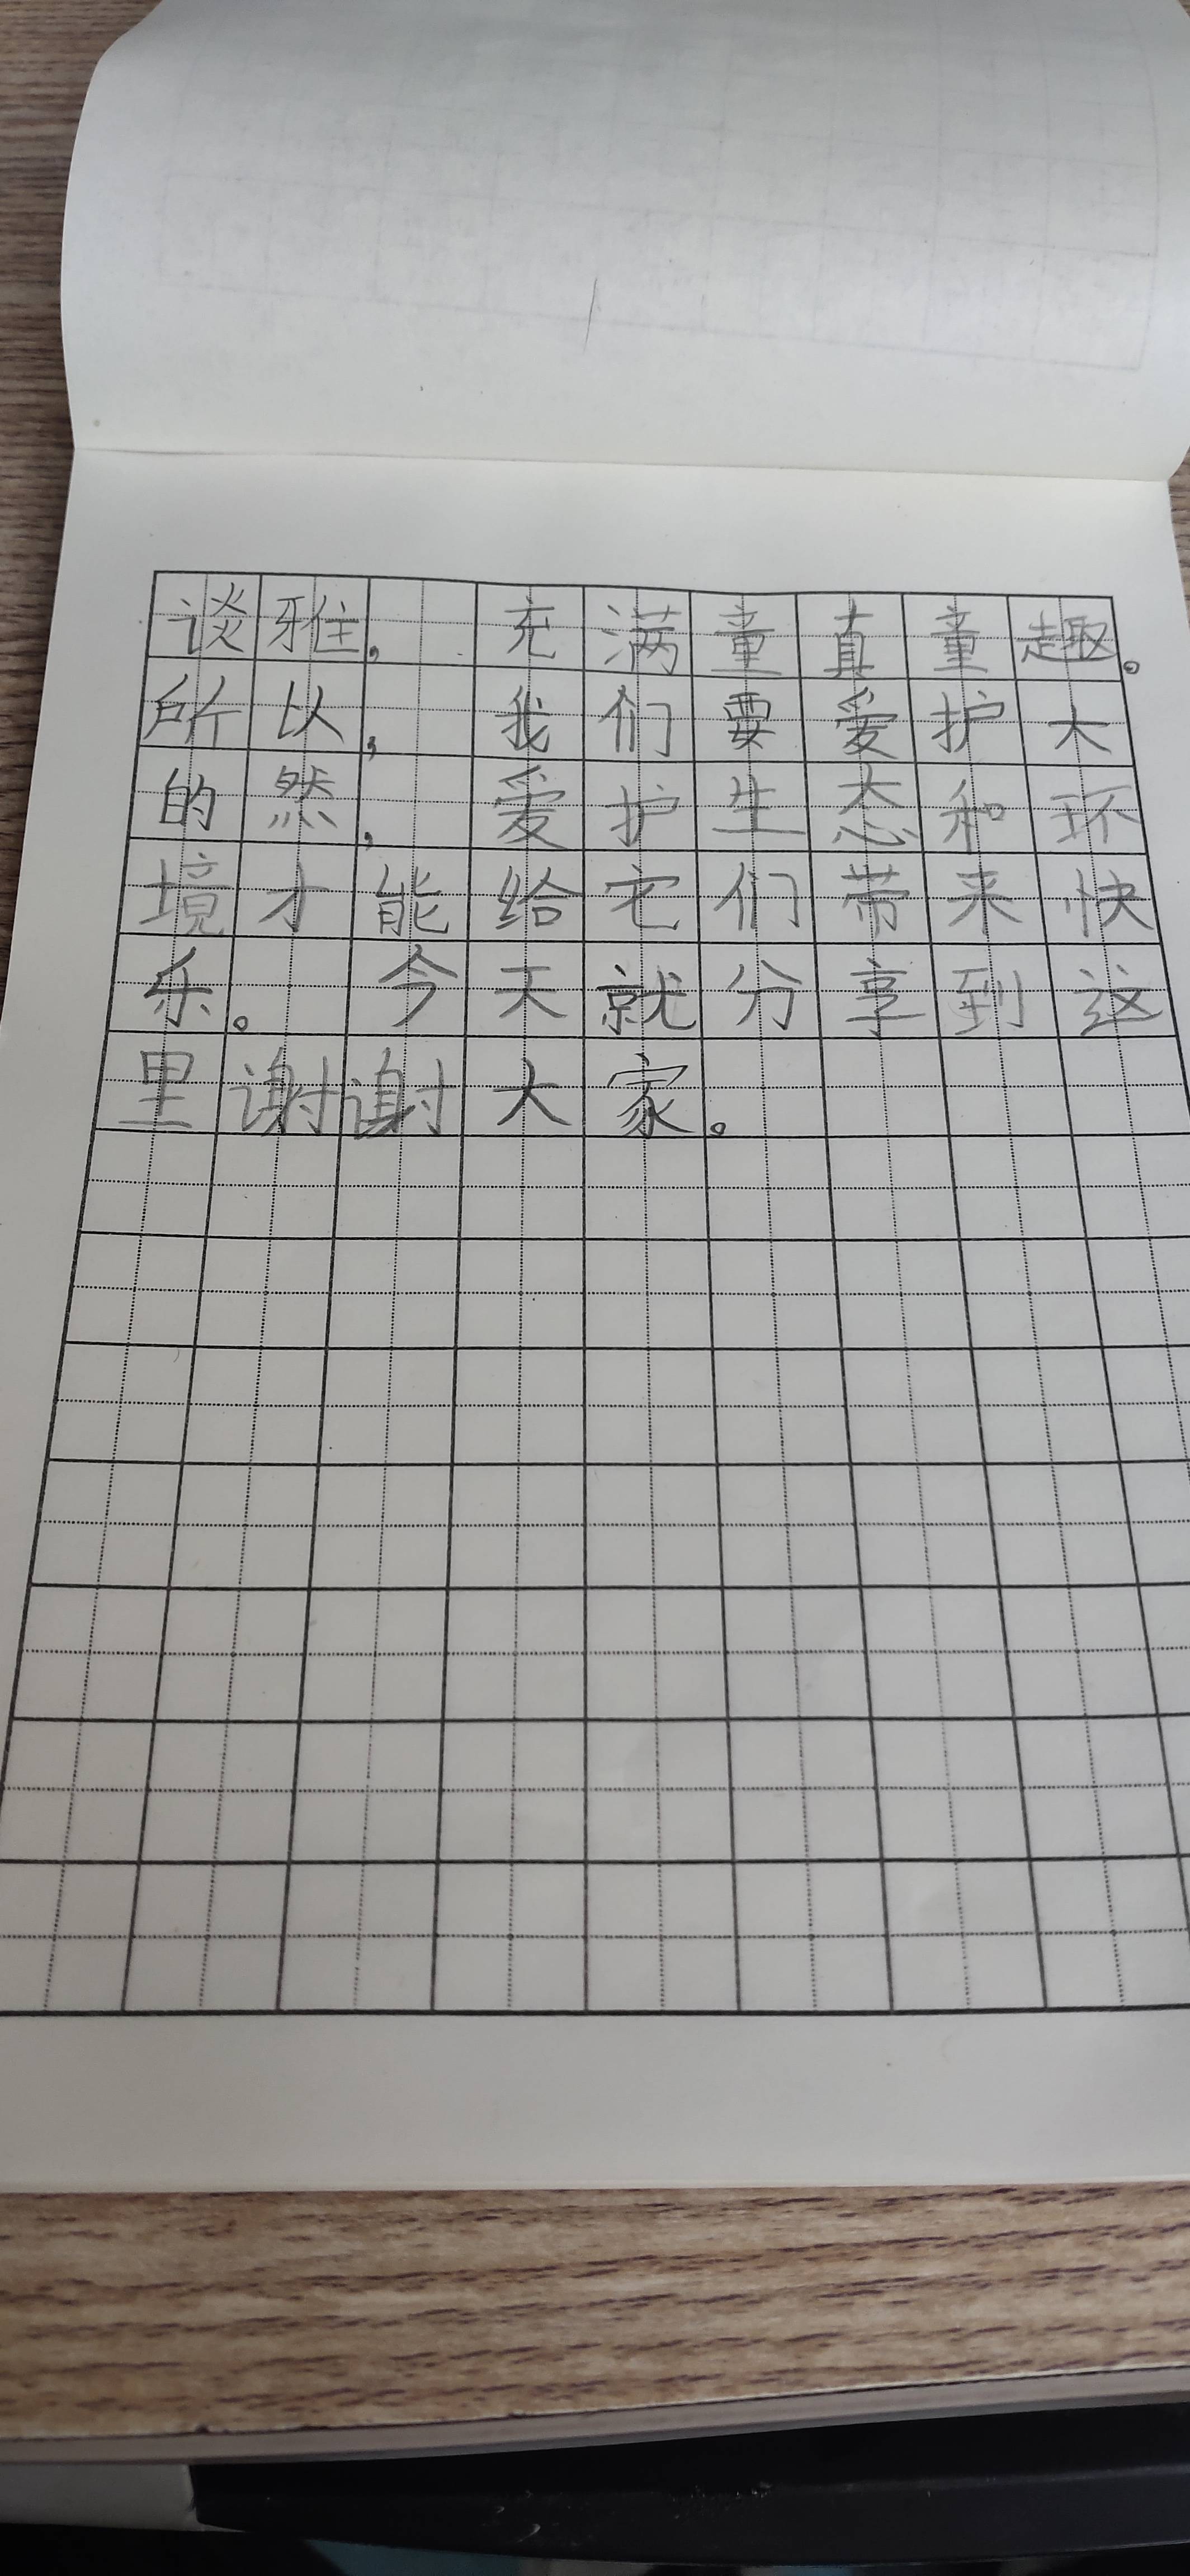 谈雅，充满童真童趣。
所以，我们要爱护大
的然，爱护生态和环
境才能给它们带来快
乐。今天就分享到这
里谢谢大家。